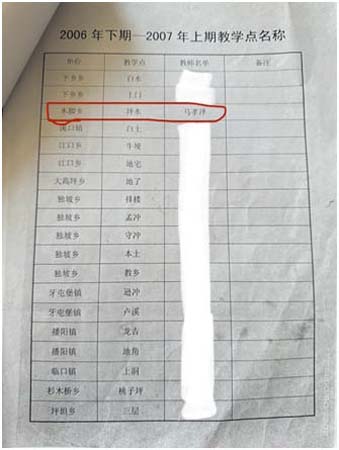 2006 年下期—2007 年上期教学点名称
单位 教学点 教师名单 备注
下乡乡 白水
下乡乡 土门
木脚乡 坪水 马孝坪
溪口镇 白土
江口乡 牛埂
江口乡 地宅
大高坪乡 地了
独坡乡 排楼
独坡乡 孟冲
独坡乡 守冲
独坡乡 本土
独坡乡 教乡
牙屯堡镇 逊冲
牙屯堡镇 卢溪
播阳镇 龙吉
播阳镇 地角
临口镇 上洞
杉木桥乡 桃子坪
坪坦乡 三层